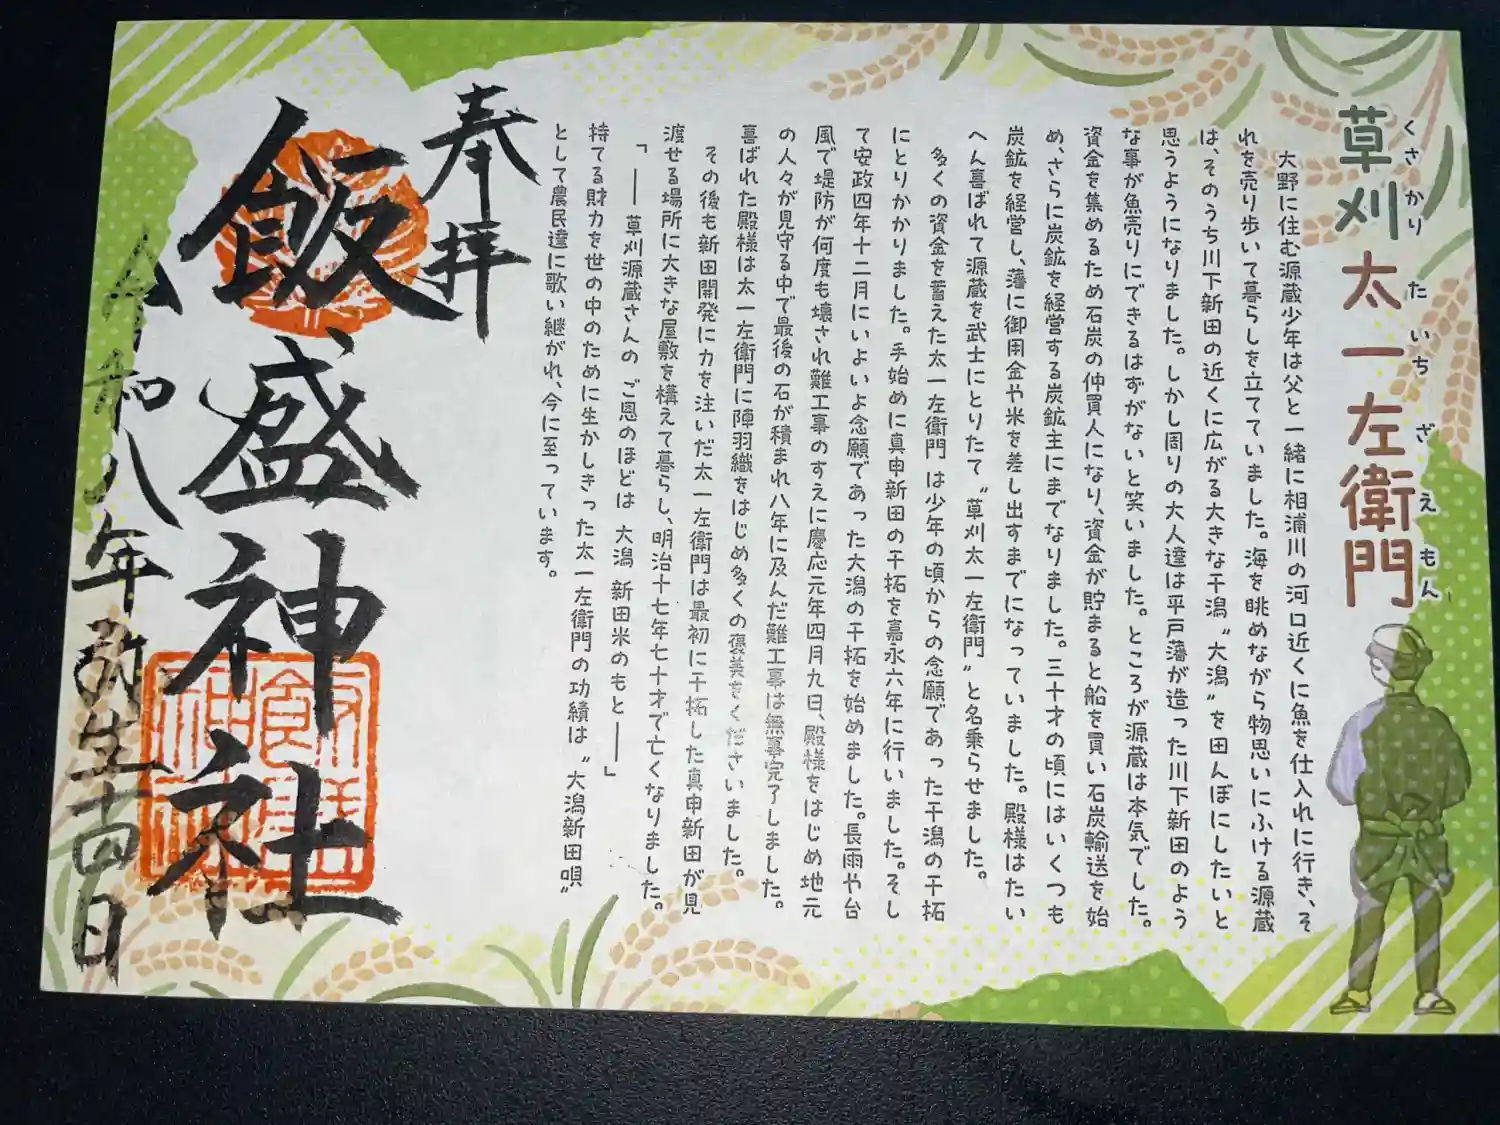 草刈太一左衛門
くさかり たいちざえもん
大野に住む源蔵少年は父と一緒に相浦川の河口近くに魚を仕入れに行き、そ
れを売り歩いて暮らしを立てていました。海を眺めながら物思いにふける源蔵
は、そのうち川下新田の近くに広がる大きな干潟〝大潟〟を田んぼにしたいと
思うようになりました。しかし周りの大人達は平戸藩が造った川下新田のよう
な事が魚売りにできるはずがないと笑いました。ところが源蔵は本気でした。
資金を集めるため石炭の仲買人になり、資金が貯まると船を買い石炭輸送を始
め、さらに炭鉱を経営する炭鉱主にまでなりました。三十才の頃にはいくつも
炭鉱を経営し、藩に御用金や米を差し出すまでになっていました。殿様はたい
へん喜ばれて源蔵を武士にとりたて〝草刈太一左衛門〟と名乗らせました。
多くの資金を蓄えた太一左衛門 は少年の頃からの念願であった干潟の干拓
にとりかかりました。手始めに真申新田の干拓を嘉永六年に行いました。そし
て安政四年十二月にいよいよ念願であった大潟の干拓を始めました。長雨や台
風で堤防が何度も壊され難工事のすえに慶応元年四月九日、殿様をはじめ地元
の人々が見守る中で最後の石が積まれ八年に及んだ難工事は無事完了しました。
喜ばれた殿様は太一左衛門に陣羽織をはじめ多くの褒美をくださいました。
その後も新田開発に力を注いだ太一左衛門は最初に干拓した真申新田が見
渡せる場所に大きな屋敷を構えて暮らし、明治十七年七十才で亡くなりました。
「―― 草刈源蔵さんの ご恩のほどは 大潟 新田米のもと――」
持てる財力を世の中のために生かしきった太一左衛門の功績は〝大潟新田唄〟
として農民達に歌い継がれ、今に至っています。
奉拝
飯盛神社
飯盛神社
令和八年弥生十四日